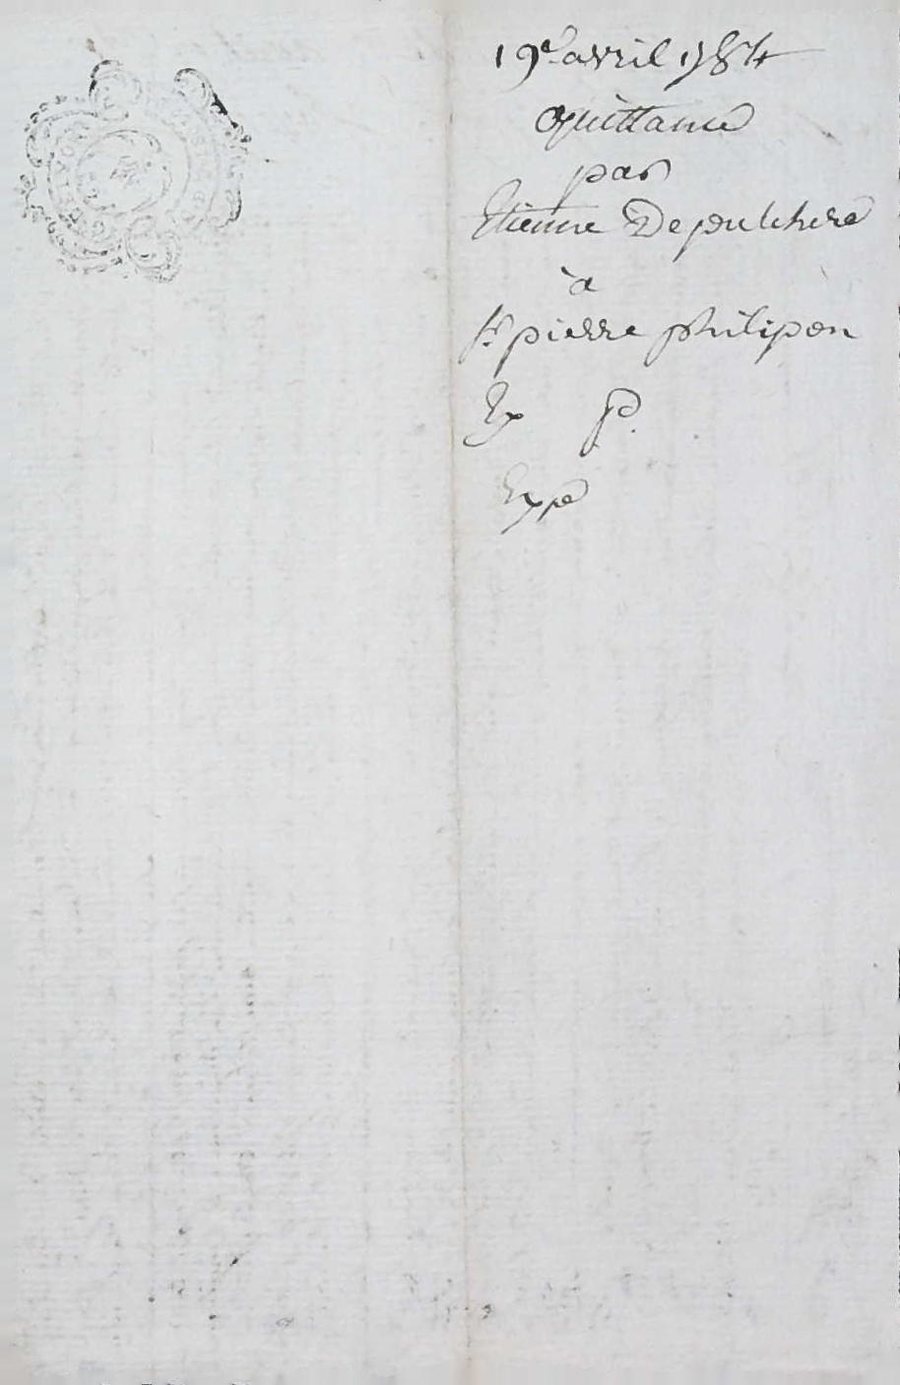 19e avril 1784
Quittance
par
Etienne Depulchere
à
Sr pierre philipon
Ex P.
Expé